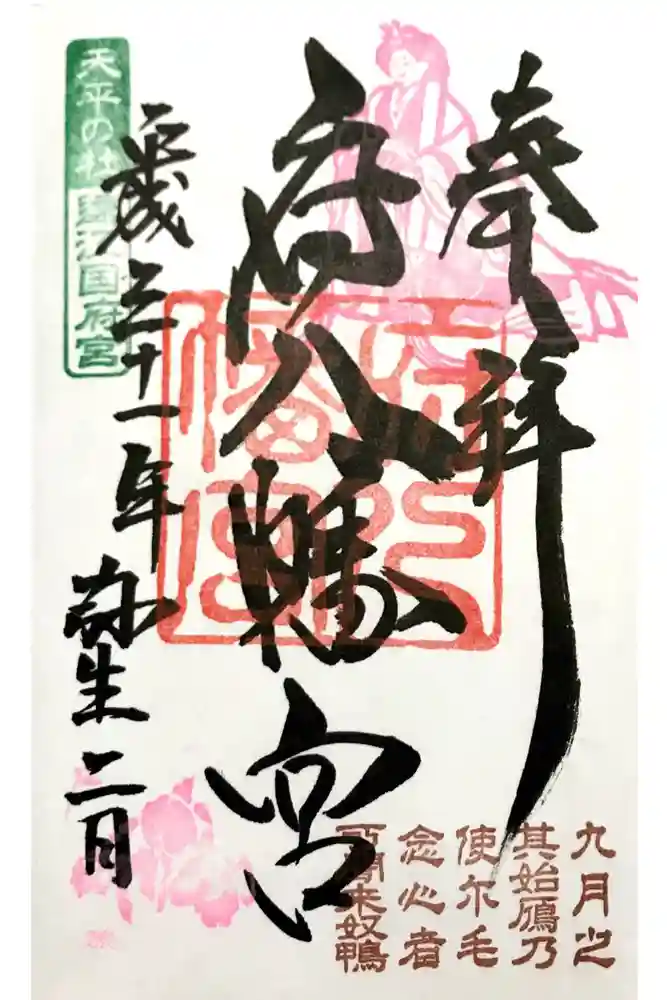 奉拝
府八幡宮
平成三十一年 弥生 二日
天平の社 遠江国府宮
九月之
其始鴈乃
使尓毛
念心者
所聞来奴鴨